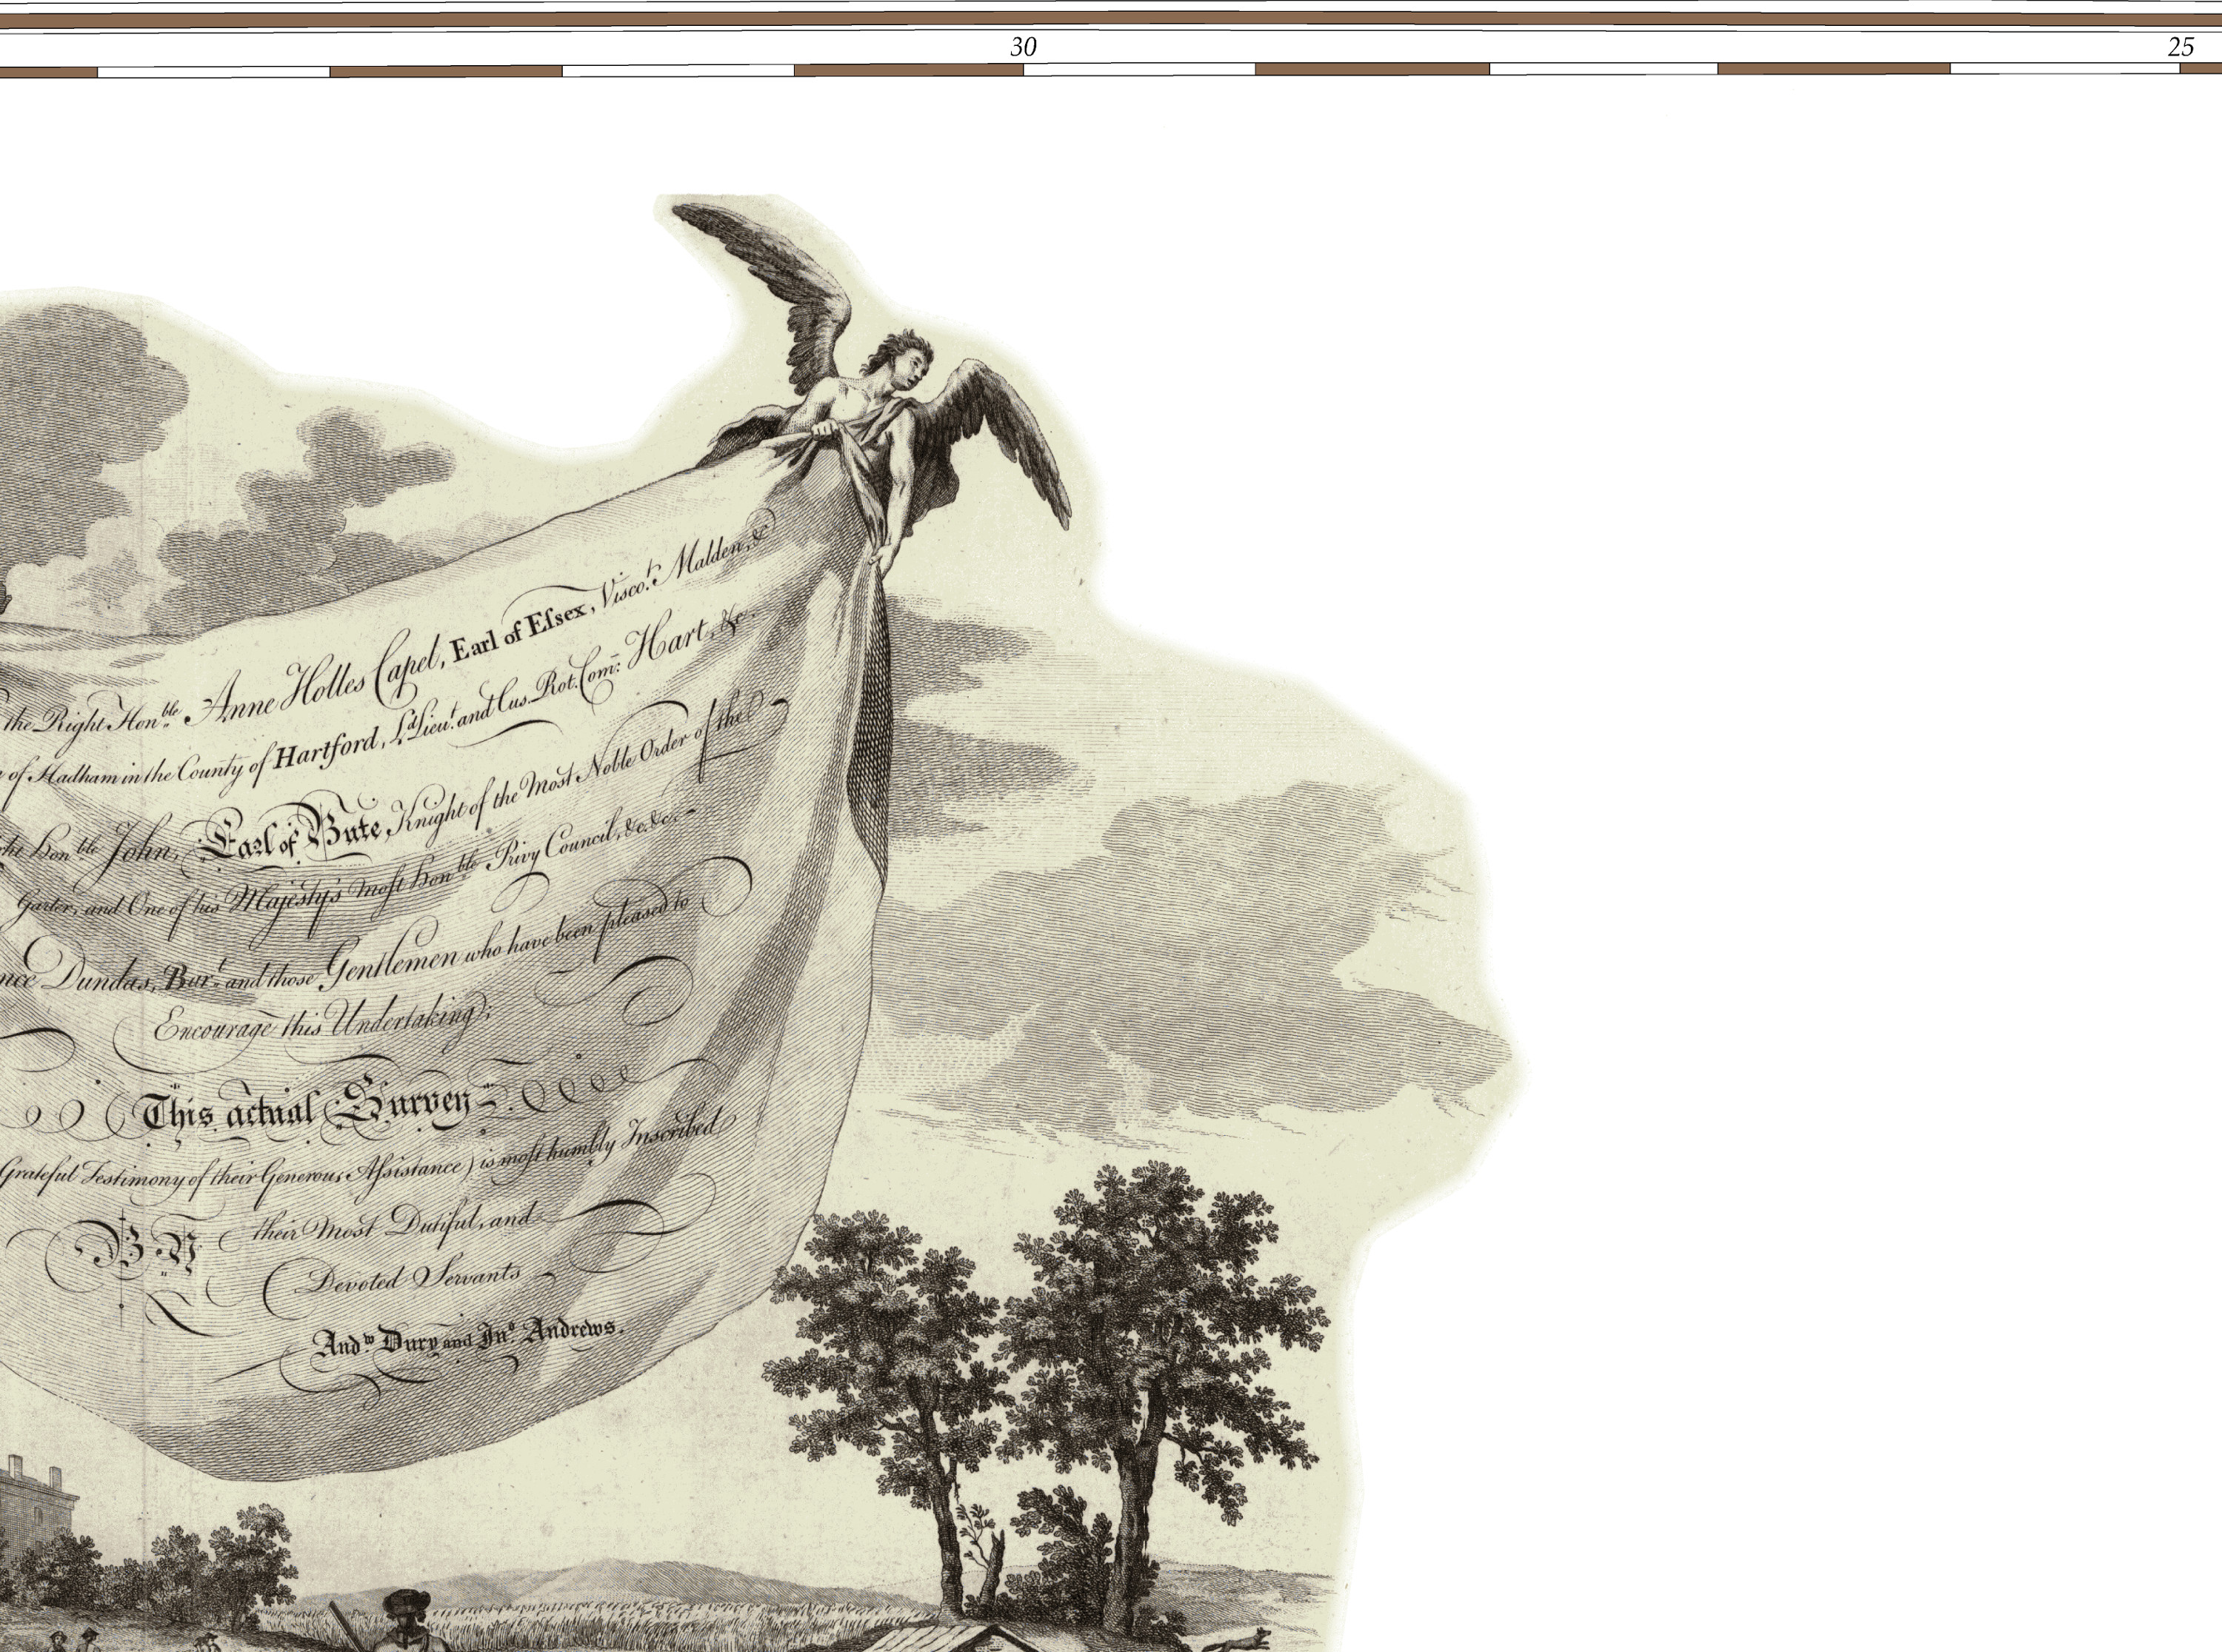 30 25
the Right Hon.ble Anne Holles Capel, Earl of Eſsex, Visco.t Malden, &c
of Hadham in the County of Hartford, L.d Lieu.t and Cus. Rot. Com: Hart, &c.
Hon ble John, Earl of Bute Knight of the Most Noble Order of the
Garter, and One of his Majesty's most Hon ble Privy Council, &c. &c.
Dundas, Bar.t and those Gentlemen who have been pleased to
Encourage this Undertaking;
This actual Survey
Grateful Testimony of their Generous Aſsistance) is moſt humbly Inscribed
BY their Most Dutiful, and
Devoted Servants
And.w Dury and Jn.o Andrews.